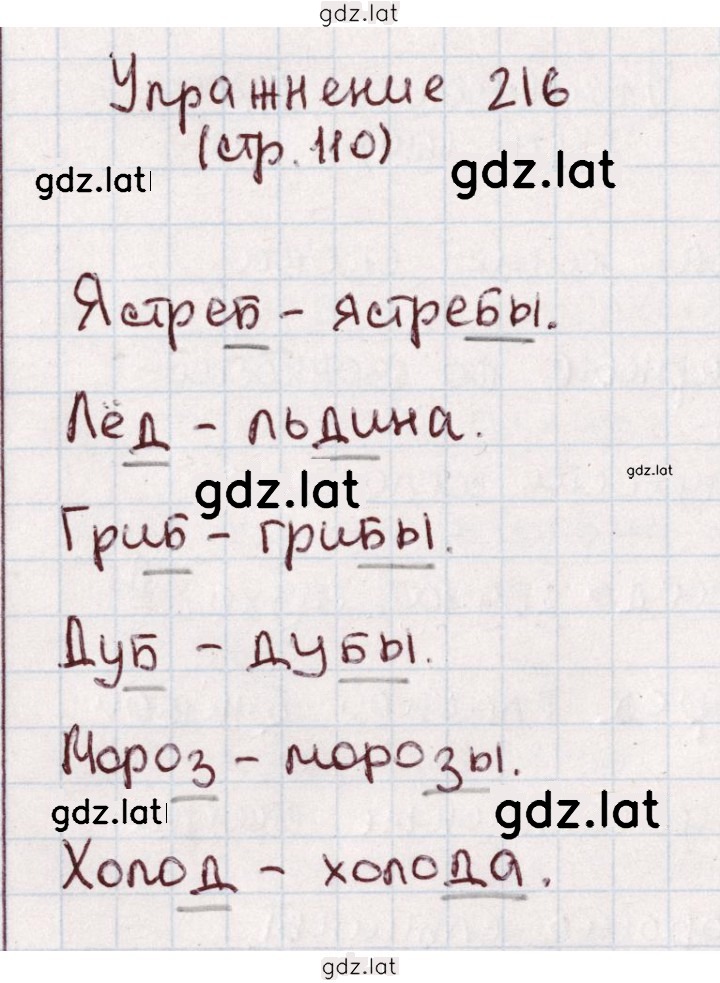 gdz.lat
Упражнение 216
(стр. 110)
gdz.lat gdz.lat
Ястреб - ястребы.
Лёд - льдина.
gdz.lat gdz.lat
Гриб - грибы.
Дуб - дубы.
Мороз - морозы.
gdz.lat gdz.lat
Холод - холода.
gdz.lat